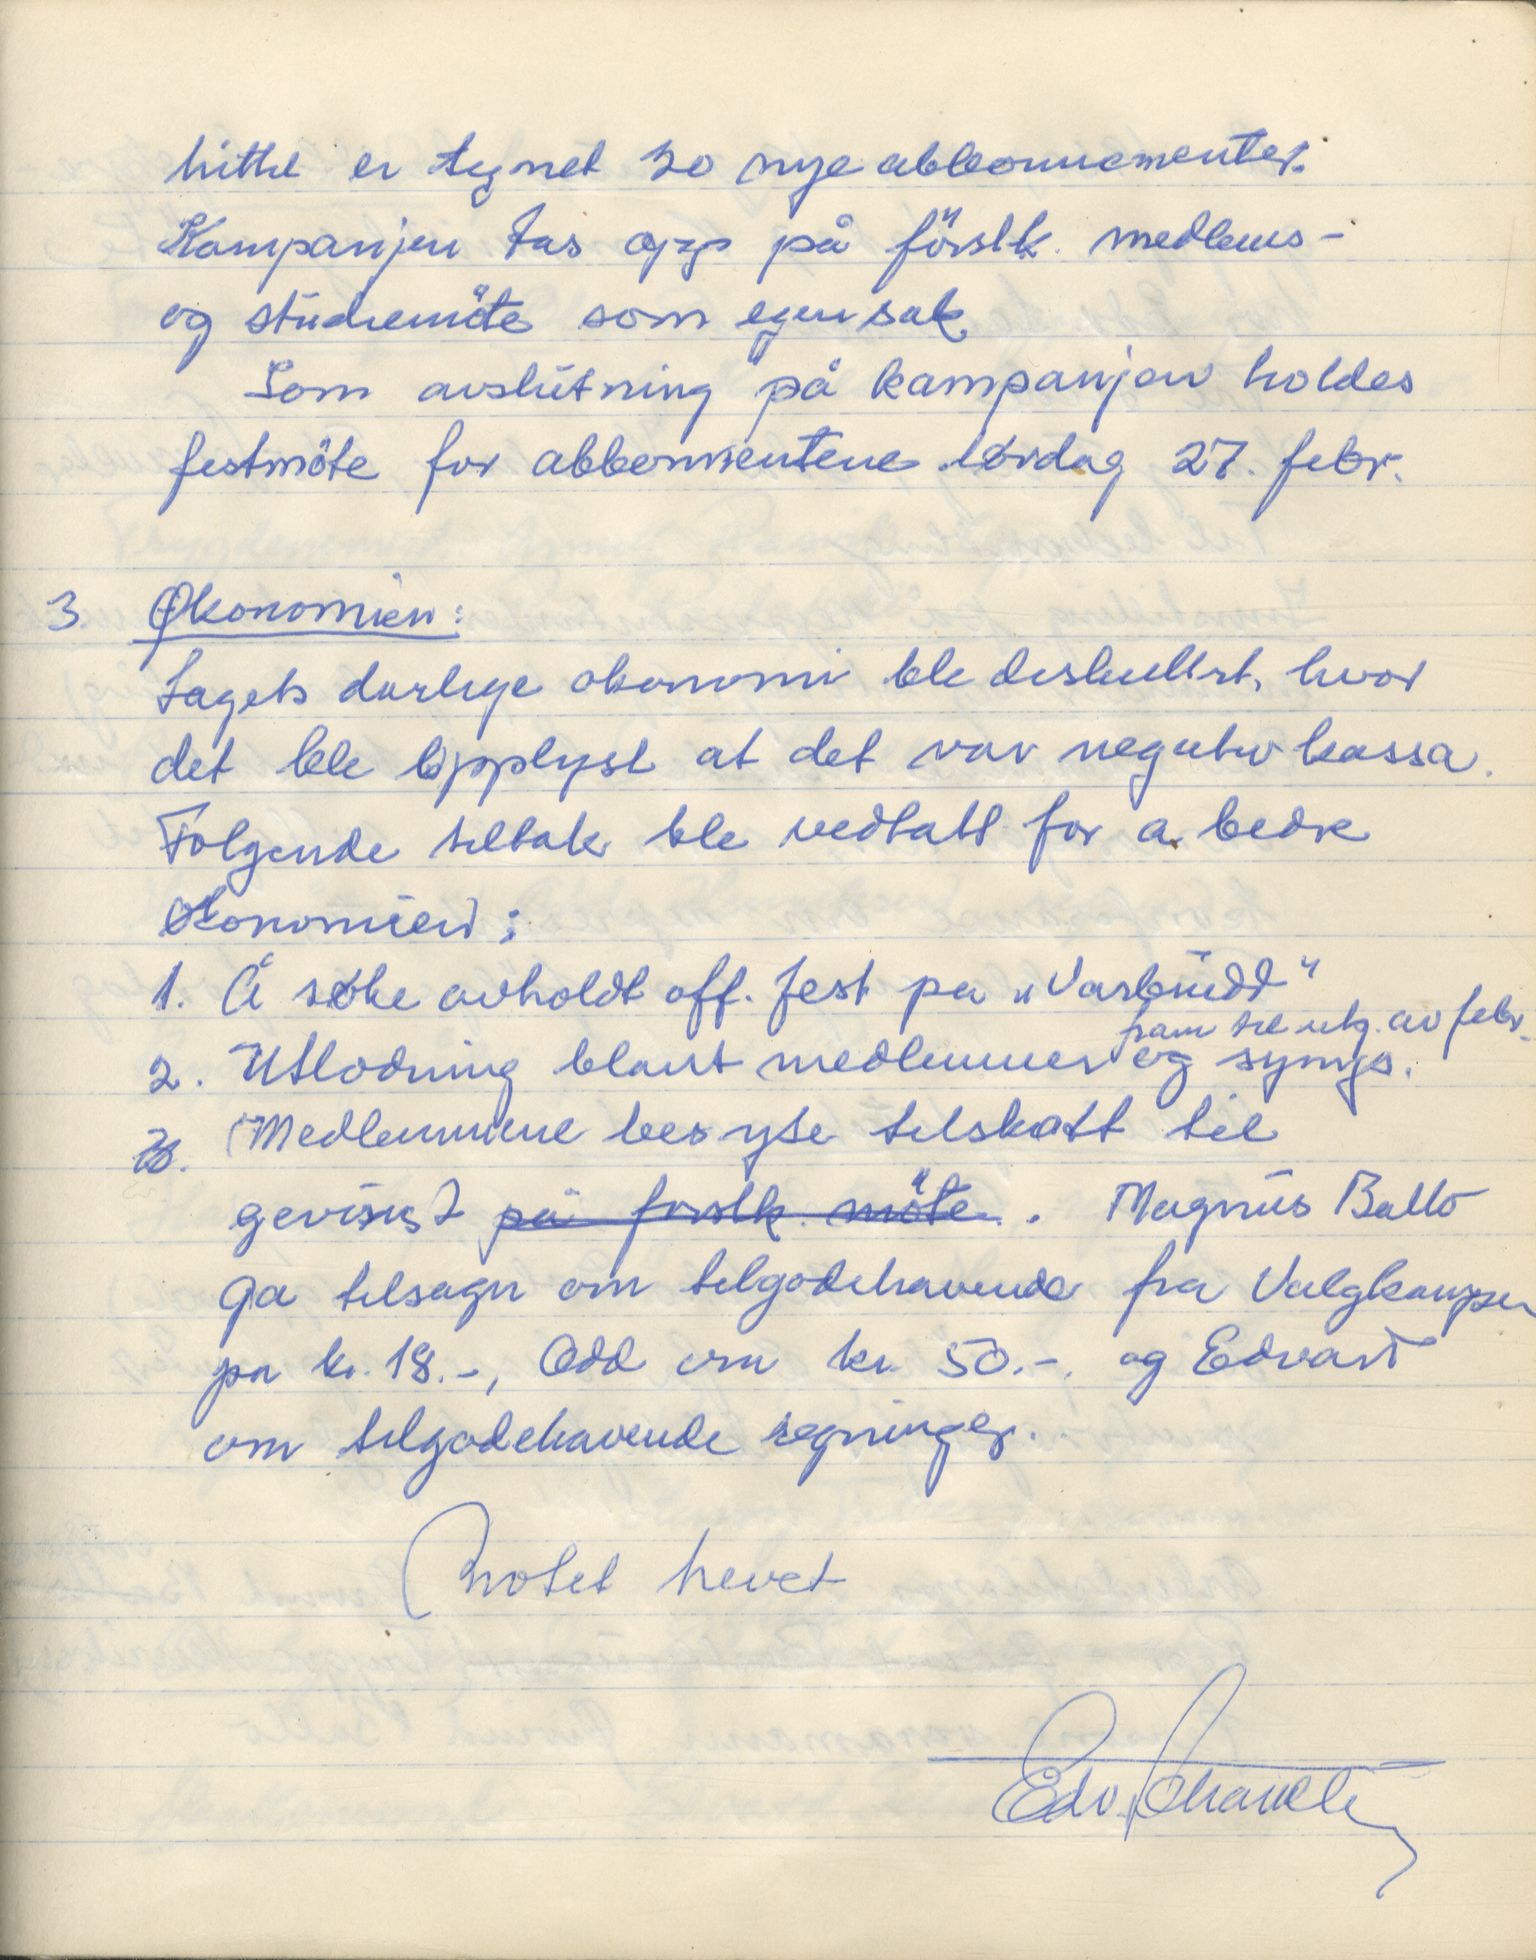 hittil er tegnet 20 nye abbonnementer.
Kampanjen tas opp på förstk. medlems-
og studiemöte som egen sak.
Som avslutning på kampanjen holdes
festmöte for abbonnentene lørdag 27. febr.
3 Økonomien:
Lagets darlige økonomi ble diskutert, hvor
det ble opplyst at det var negativ kassa.
Følgende tiltak ble vedtatt for a bedre
økonomien:
1. Å søke avholdt off. fest pa „Varbudd"
fram til utg. av febr.
2. Utlodning blant medlemmer og symps.
3. Medlemmene bes yte tilskott til
gevinst på forstk. möte. Magnus Ballo
ga tilsagn om tilgodehavende fra Valgkampen
pa kr. 18.-, Odd om kr. 50.-, og Edvart
om tilgodehavende regninger.
Motet hevet
Edv.